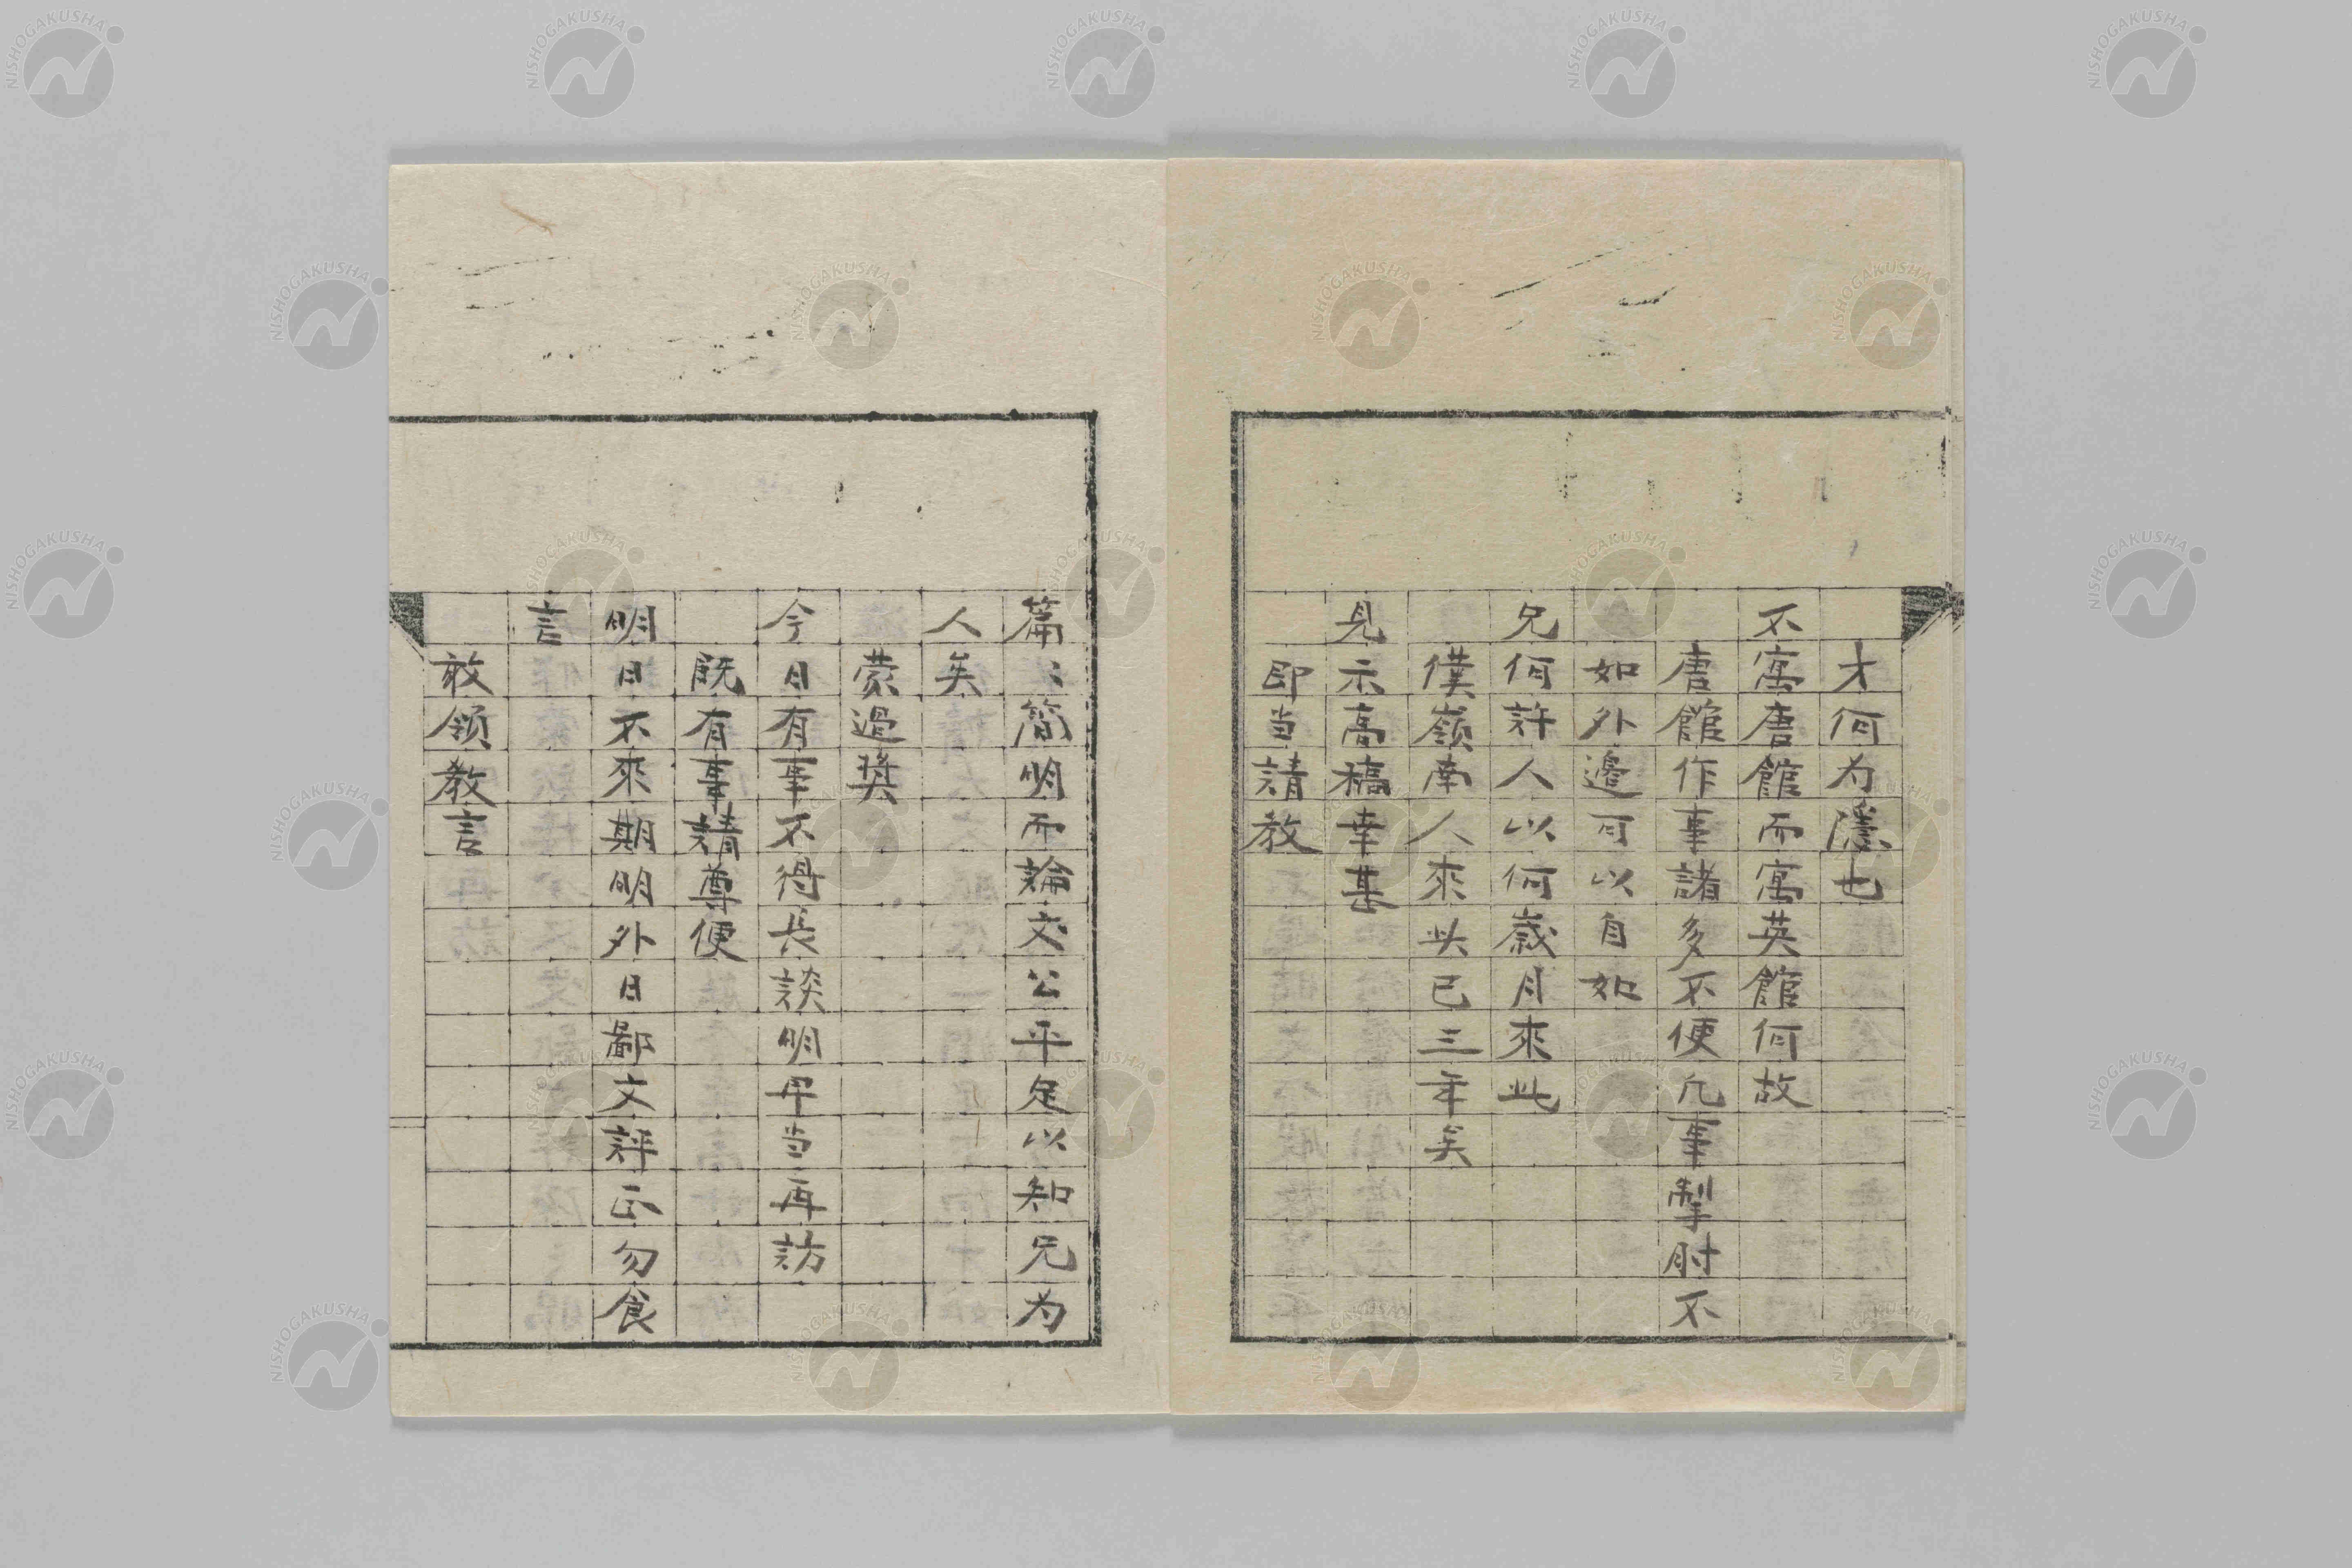 才何为隱也
不寓唐館而寓英館何故
唐館作事諸多不便凢事掣肘不
如外邉可以自如
兄何許人以何歲月來此
僕嶺南人來此已三年矣
見示高稿幸甚
即当請教
篇〻簡明而論交公平足以知兄为
人矣
蒙過奬
今日有事不得長談明日当再訪
既有事請尊便
明日不來期明外日鄙文評正勿食
言
敢领教言